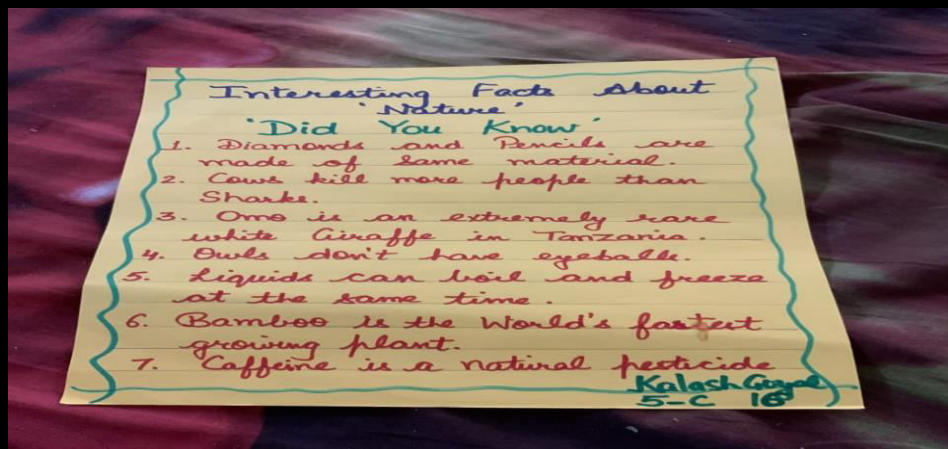 Interesting Facts About
'Nature'
'Did You Know'
1. Diamonds and Pencils are
made of same material.
2. Cows kill more people than
Sharks.
3. Omo is an extremely rare
white Giraffe in Tanzania.
4. Owls don't have eyeballs.
5. Liquids can boil and freeze
at the same time.
6. Bamboo is the World's fastest
growing plant.
7. Caffeine is a natural pesticide
Kalash Goyal
5-C 16